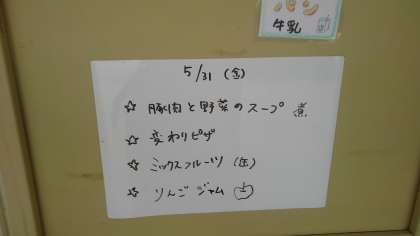 パン
牛乳
5/31 (金)
☆ 豚肉と野菜のスープ 煮
☆ 変わりピザ
☆ ミックスフルーツ (缶)
☆ りんごジャム